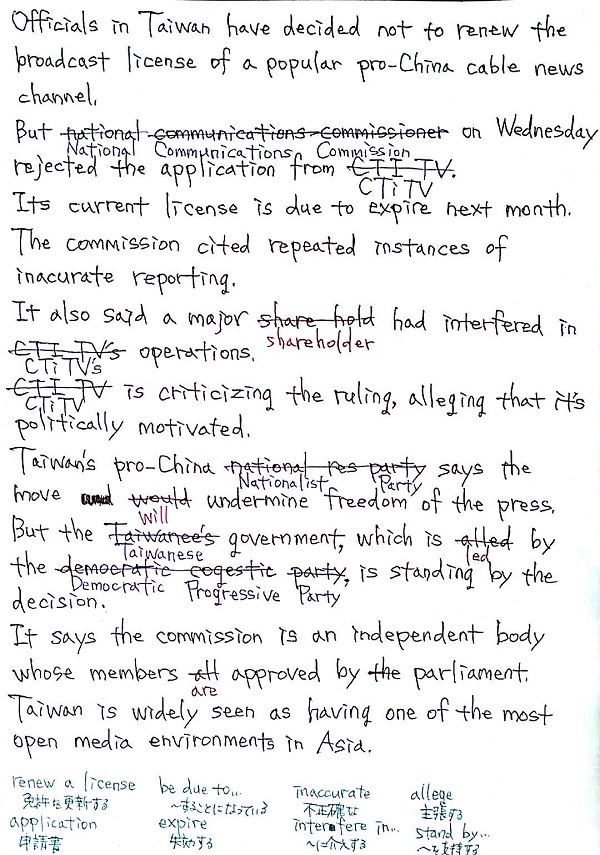 Officials in Taiwan have decided not to renew the
broadcast license of a popular pro-China cable news
channel.
But national communications commissioner on Wednesday
National Communications Commission
rejected the application from CTI TV.
CTiTV
Its current license is due to expire next month.
The commission cited repeated instances of
inacurate reporting.
It also said a major share hold had interfered in
shareholder
CTI TV's operations.
CTiTV's
CTI TV is criticizing the ruling, alleging that it's
CTiTV
politically motivated.
Taiwan's pro-China national res party says the
Nationalist Party
move and would undermine freedom of the press.
will
But the Taiwanee's government, which is alled by
Taiwanese led
the democratic cogestic party, is standing by the
Democratic Progressive Party
decision.
It says the commission is an independent body
whose members all approved by the parliament.
are
Taiwan is widely seen as having one of the most
open media environments in Asia.
renew a license be due to... inaccurate allege
免許を更新する 〜することになっている 不正確な 主張する
application expire interefere in... stand by...
申請書 失効する 〜に介入する 〜を支持する